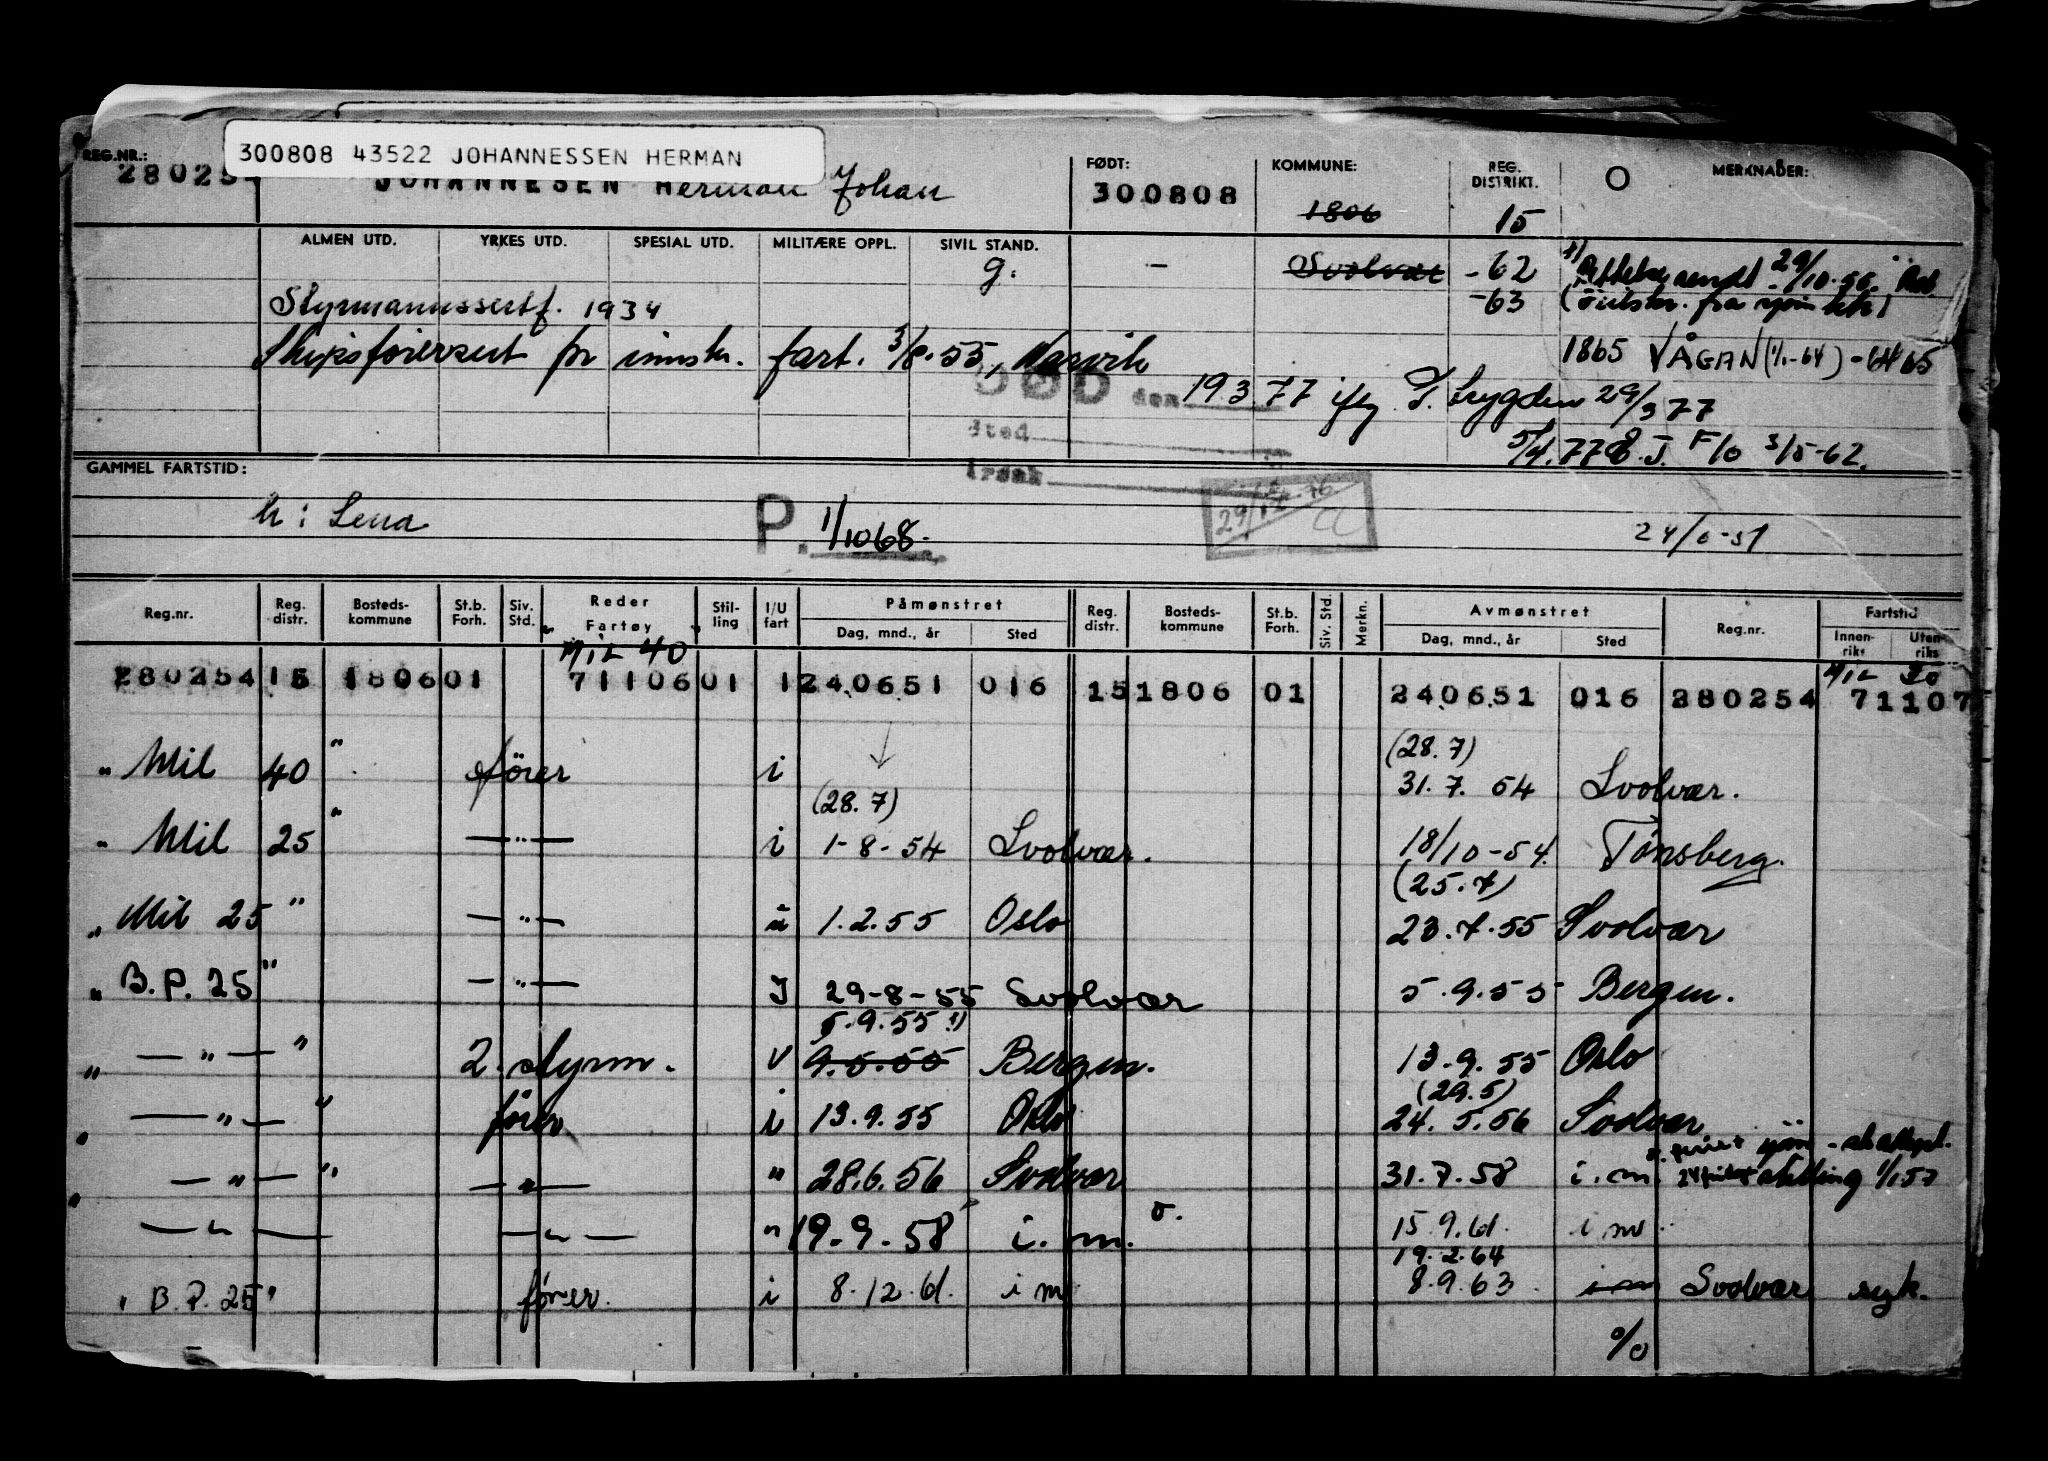 300808 43522 JOHANNESSEN HERMAN
REG.NR.: FØDT: KOMMUNE: REG. DISTRIKT. O MERKNADER:
28025 JOHANNESEN Herman Johan 300808 1806 15
ALMEN UTD. YRKES UTD. SPESIAL UTD. MILITÆRE OPPL. SIVIL STAND.
g. — Svolvær -62 29/10.56.
Styrmannssertf. 1934 -63
Skipsførersert for innskr. fart. 3/8.55, Narvik 1865 VÅGAN (1/1-64) -64 65
DØD den 19.3 77 iflg. T. Trygden 29/3 77
Sted 5/4.77 E.J. F/O 3/5-62.
Årsak
GAMMEL FARTSTID:
h: Lena P. 1/1068. 29/12 24/6-51
Reg.nr. Reg. distr. Bosteds-kommune St.b. Forh. Siv. Std. Reder Fartøy Stil-ling I/U fart Påmønstret Dag, mnd., år Sted Reg. distr. Bosteds-kommune St.b. Forh. Siv. Std. Merkn. Avmønstret Dag, mnd., år Sted Reg.nr. Fartstid Innen-riks Uten-riks
Mil 40
280254 15 1806 01 71106 01 1 240651 016 15 1806 01 240651 016 280254 71107
(28.7)
" Mil 40 " fører i 31.7.54 Svolvær.
(28.7)
" Mil 25 " — " — i 1-8-54 Svolvær. 18/10-54. Tønsberg.
(25.7)
" Mil 25 " — " — 1.2.55 Oslo 23.7.55 Svolvær
" B.P. 25 " — " — I 29-8-55 Svolvær 5.9.55 Bergen.
5.9.55 1)
" — " — " 2. styrm. 9.5.55 Bergen. 13.9.55 Oslo
(29.5)
" — " — " fører i 13.9.55 Oslo 24.5.56 Svolvær
" — " — " — " — " 28.6.56 Svolvær 31.7.58 i.m. stilling 1/1.57
— " — — " — " 19.9.58 i.m. o. 15.9.61. i m
19.2.64
" B.P. 25 " fører. i 8.12.61. i m 8.9.63 i m Svolvær syk.
%